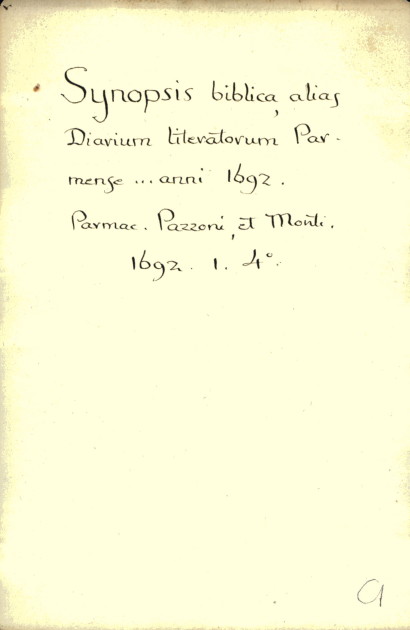 Synopsis biblica, alias
Diarium literatorum Par-
mense ... anni 1692.
Parmae. Pazzoni, et Monti.
1692. 1. 4°.